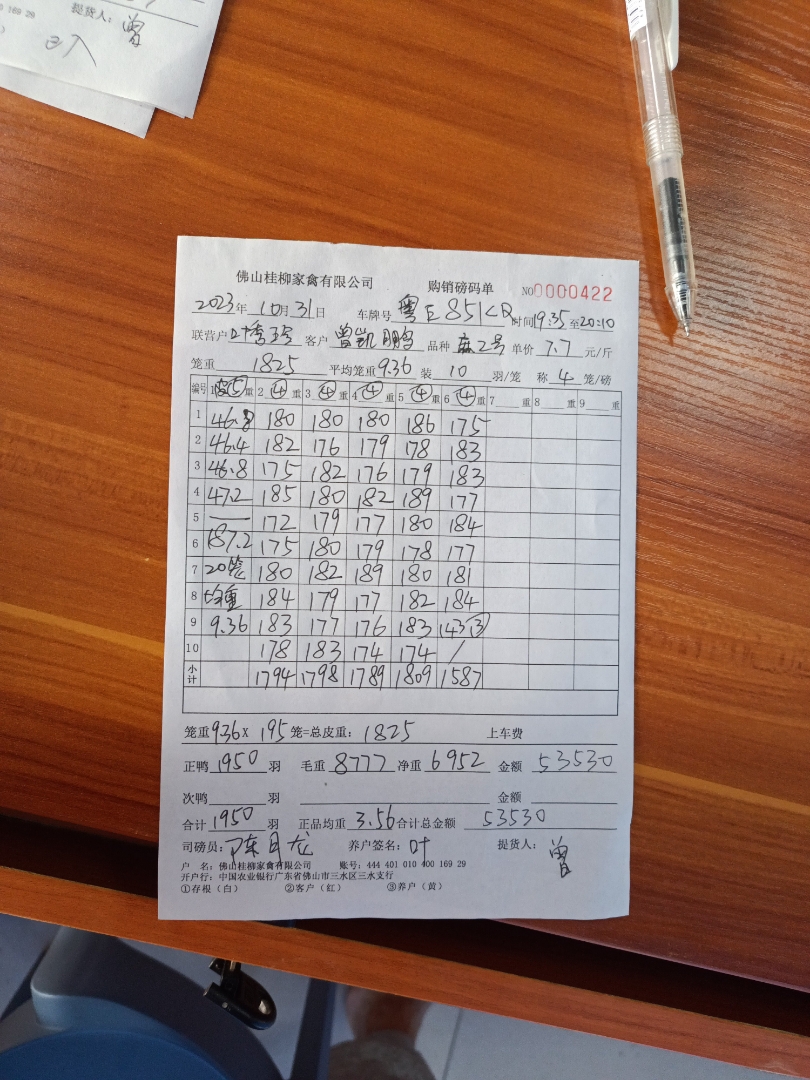 169 29 提货人: 曾
已入
佛山桂柳家禽有限公司 购销磅码单 NO0000422
2023年10月31日 车牌号 粤E 851CQ 时间19:35至20:10
联营户 叶 客户 曾凯鹏 品种 麻2号 单价 7.7 元/斤
笼重 1825 平均笼重 9.36 装 10 羽/笼 称 4 笼/磅
编号 1 ⑤ 重 2 ④ 重 3 ④ 重 4 ④ 重 5 ④ 重 6 ④ 重 7 重 8 重 9 重
1 46.8 180 180 180 186 175
2 46.4 182 176 179 178 183
3 46.8 175 182 176 179 183
4 47.2 185 180 182 189 177
5 — 172 179 177 180 184
6 187.2 175 180 179 178 177
7 20笼 180 182 189 180 181
8 均重 184 179 177 182 184
9 9.36 183 177 176 183 143③
10 178 183 174 174 /
小计 1794 1798 1789 1809 1587
笼重 936 X 195 笼=总皮重: 1825 上车费
正鸭 1950 羽 毛重 8777 净重 6952 金额 53530
次鸭 羽 金额
合计 1950 羽 正品均重 3.56 合计总金额 53530
司磅员: 陈月龙 养户签名: 叶 提货人: 曾
户 名: 佛山桂柳家禽有限公司 账号: 444 401 010 400 169 29
开户行: 中国农业银行广东省佛山市三水区三水支行
①存根（白） ②客户（红） ③养户（黄）